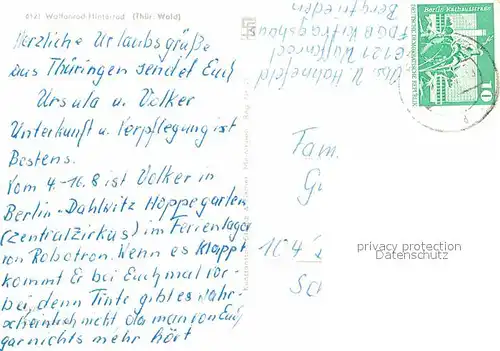 6121 Waffenrod-Hinterrod (Thür. Wald)
Herzliche Urlaubsgrüße
aus Thüringen sendet Euch
Ursula u. Volker
Unterkunft u. Verpflegung ist
Bestens.
Vom 4.-16.8 ist Volker in
Berlin-Dahlwitz Hoppegarten
(Zentralzirkas) im Ferienlager
von Robotron. Wenn es klappt
kommt Er bei Euch mal vor-
bei, denn Tinte gibt es wahr-
scheinlich nicht da man von Euch
gar nichts mehr hört
U. V. Hohnefeld
6121 Waffenrod
FDGB
Bergfrieden
Berlin Rathausstraße
10
Fam.
Gu
104
Sc
privacy protection
Datenschutz